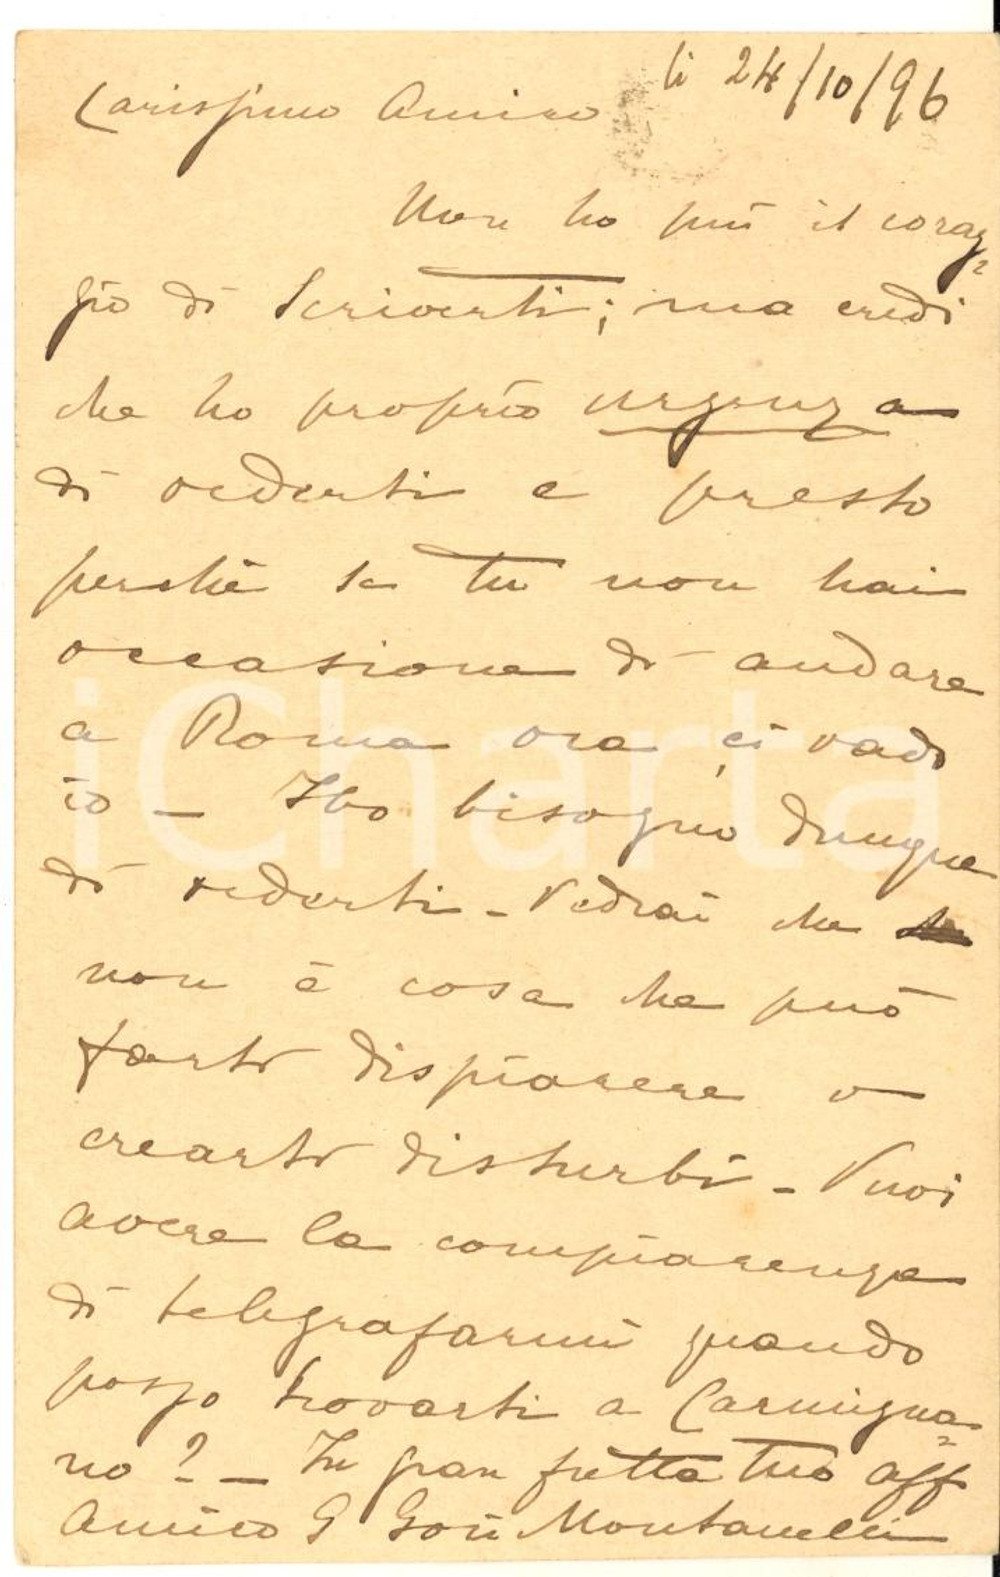 li 24/10/96
Carissimo Amico
Non ho più il corag=
gio di scriverti; ma credi
che ho proprio urgenza
di vederti e presto
perchè se tu non hai
occasione di andare
a Roma ora ci vado
io – Ho bisogno dunque
di vederti – Vedrai che
non è cosa che può
farti dispiacere o
crearti disturbi – Vuoi
avere la compiacenza
di telegrafarmi quando
posso trovarti a Carmigna=
no? – In gran fretta tuo aff
Amico G Gori Montanelli
iCharta